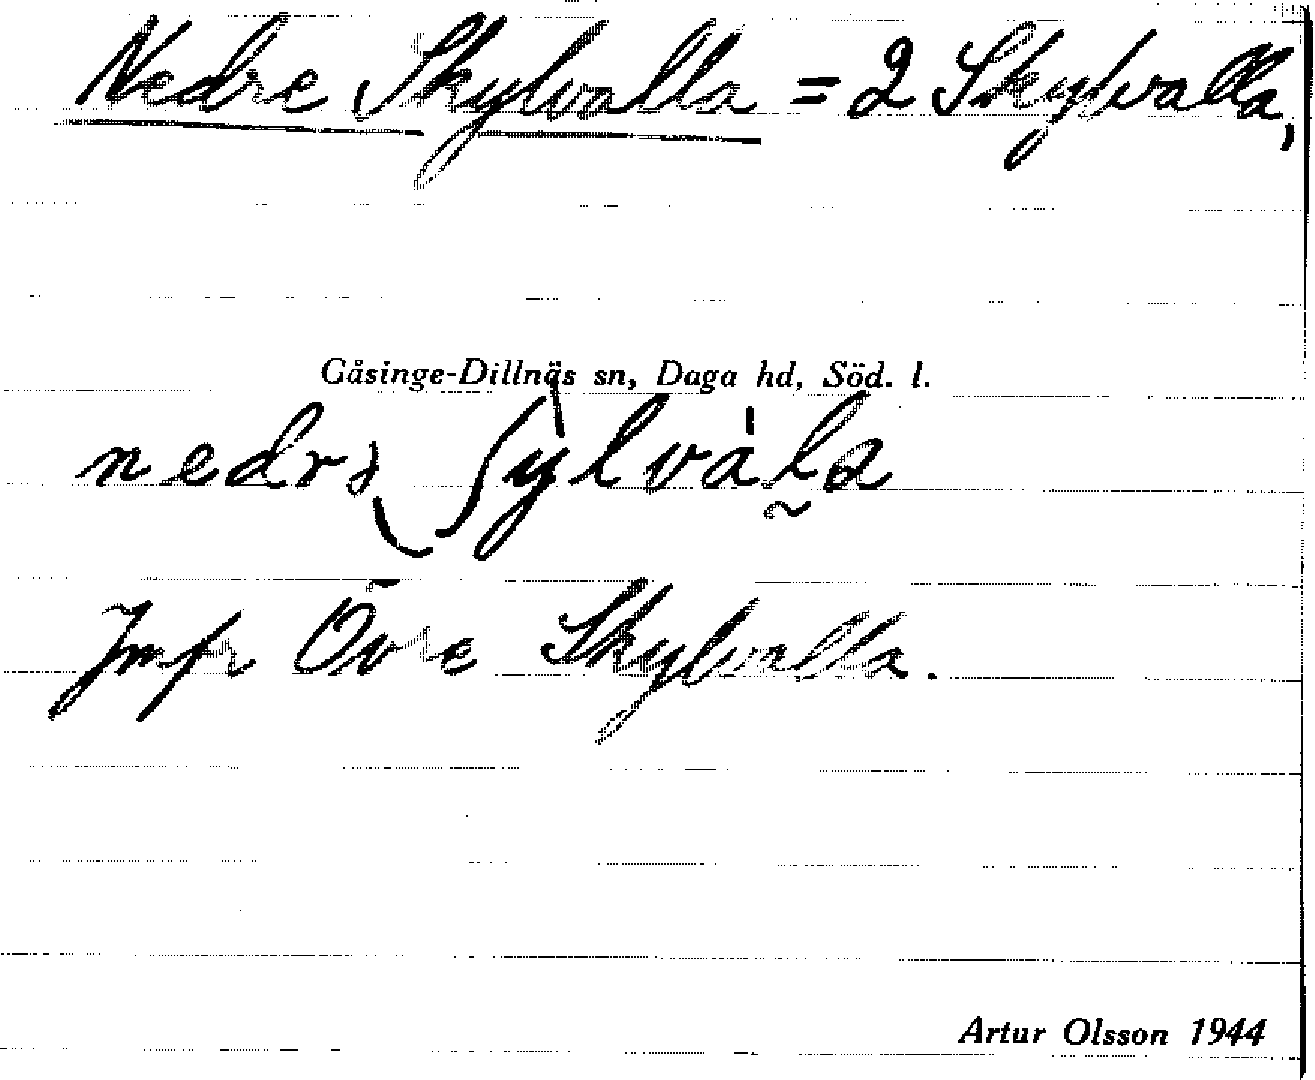 Nedre Skylvalla = 2 Skylvalla,
Gåsinge-Dillnäs sn, Daga hd, Söd. l.
nedrə ʃy̍lva̍l̰a
Jmfr Övre Skylvalla.
Artur Olsson 1944